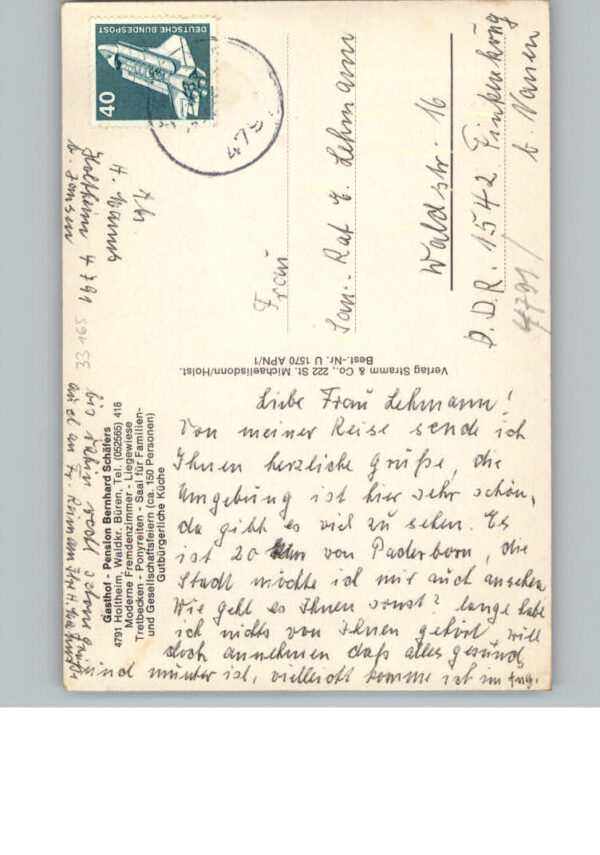 DEUTSCHE BUNDESPOST
40
479
Abs.
H. Mannes
Holtheim 4791
b. Jansen
33165
Frau
San.-Rat E. Lehmann
Waldstr. 16
D.D.R. 1542 Finkenkrug
b. Nauen
4791/
Verlag Stramm & Co., 222 St. Michaelisdonn/Holst.
Best.-Nr. U 1570 APN/1
Gasthof - Pension Bernhard Schäfers
4791 Holtheim, Waldkr. Büren, Tel. (052565) 418
Moderne Fremdenzimmer - Liegewiese
Tretbecken - Ponyreiten - Saal für Familien-
und Gesellschaftsfeiern (ca. 150 Personen)
Gutbürgerliche Küche
Liebe Frau Lehmann!
Von meiner Reise sende ich
Ihnen herzliche Grüße, die
Umgebung ist hier sehr schön,
da gibt es viel zu sehen. Es
ist 20 km von Paderborn, die
Stadt möchte ich mir auch ansehen.
Wie geht es Ihnen sonst? lange habe
ich nichts von Ihnen gehört, will
doch annehmen daß alles gesund
und munter ist, vielleicht komme ich im Aug.
bis dahin recht schöne Grüße
auch an Fr.